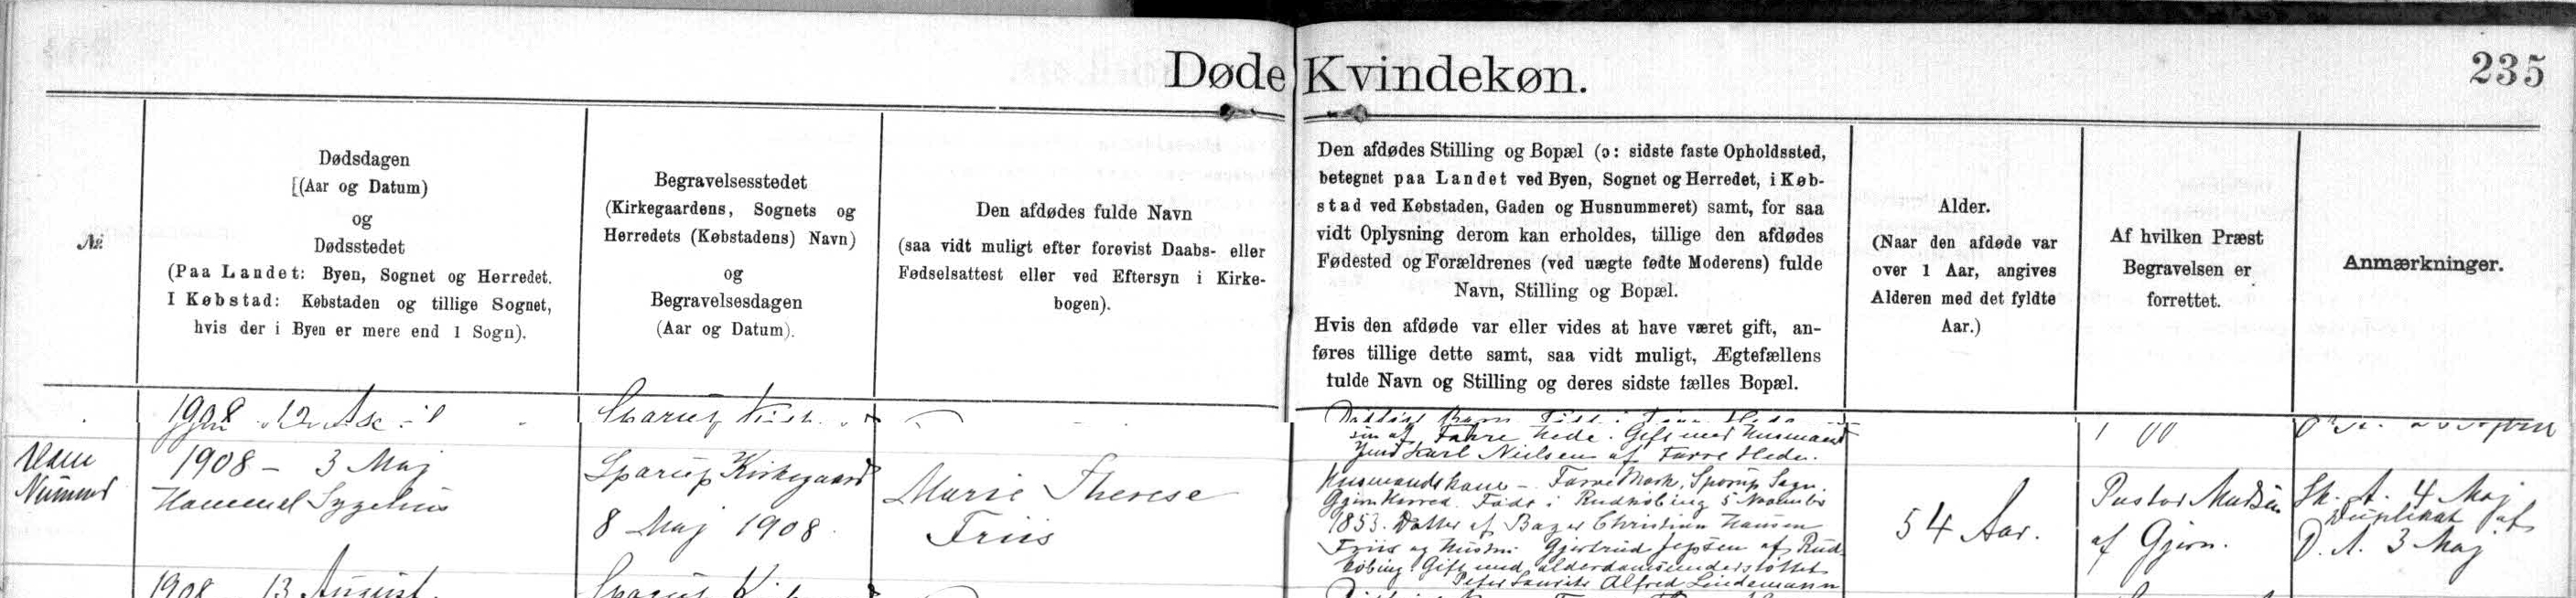 Døde Kvindekøn.
235
№
Dødsdagen
[(Aar og Datum)
og
Dødsstedet
(Paa Landet: Byen, Sognet og Herredet.
I Købstad: Købstaden og tillige Sognet,
hvis der i Byen er mere end 1 Sogn).
Begravelsesstedet
(Kirkegaardens, Sognets og
Herredets (Købstadens) Navn)
og
Begravelsesdagen
(Aar og Datum).
Den afdødes fulde Navn
(saa vidt muligt efter forevist Daabs- eller
Fødselsattest eller ved Eftersyn i Kirke-
bogen).
Den afdødes Stilling og Bopæl (ɔ: sidste faste Opholdssted,
betegnet paa Landet ved Byen, Sognet og Herredet, i Køb-
stad ved Købstaden, Gaden og Husnummeret) samt, for saa
vidt Oplysning derom kan erholdes, tillige den afdødes
Fødested og Forældrenes (ved uægte fødte Moderens) fulde
Navn, Stilling og Bopæl.
Hvis den afdøde var eller vides at have været gift, an-
føres tillige dette samt, saa vidt muligt, Ægtefællens
fulde Navn og Stilling og deres sidste fælles Bopæl.
Alder.
(Naar den afdøde var
over 1 Aar, angives
Alderen med det fyldte
Aar.)
Af hvilken Præst
Begravelsen er
forrettet.
Anmærkninger.
1908 12
af Farre Hede. Gift med Husmand
Karl Nielsen af Farre Hede.
Uden
Nummer
1908 - 3 Maj
Hammel Sygehus
Sporup Kirkegaard
8 Maj 1908.
Marie Therese
Friis
Husmandskone - Farre Mark, Sporup Sogn,
Gjern Herred. Født i Rudkøbing 5 November
1853. Datter af Bager Christian Hansen
Friis og Hustru Gjertrud Jepsen af Rud-
købing. Gift med alderdomsunderstøttet
Peter Laurits Alfred Lindemann
54 Aar.
Pastor Madsen
af Gjern.
Sk. A. 4 Maj
Duplikat af
D. A. 3 Maj
1908 - 13 August.